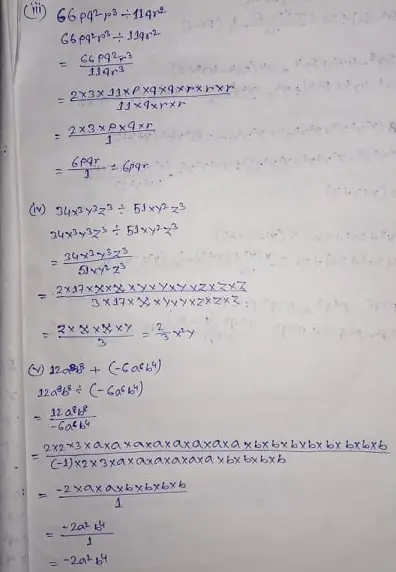 (iii) 66pq²r³ ÷ 11qr²
66pq²r³ ÷ 11qr²
= 66pq²r³ / 11qr³
= 2×3×11×p×q×q×r×r×r / 11×q×r×r
= 2×3×p×q×r / 1
= 6pqr / 1 = 6pqr
(iv) 34x³y³z³ ÷ 51xy²z³
34x³y³z³ ÷ 51xy²z³
= 34x³y³z³ / 51xy²z³
= 2×17×x×x×x×y×y×y×z×z×z / 3×17×x×y×y×z×z×z
= 2×x×x×y / 3 = 2/3 x²y
(v) 12a⁸b⁸ ÷ (-6a⁶b⁴)
12a⁸b⁸ ÷ (-6a⁶b⁴)
= 12a⁸b⁸ / -6a⁶b⁴
= 2×2×3×a×a×a×a×a×a×a×a×b×b×b×b×b×b×b×b / (-1)×2×3×a×a×a×a×a×a×b×b×b×b
= -2×a×a×b×b×b×b / 1
= -2a²b⁴ / 1
= -2a²b⁴